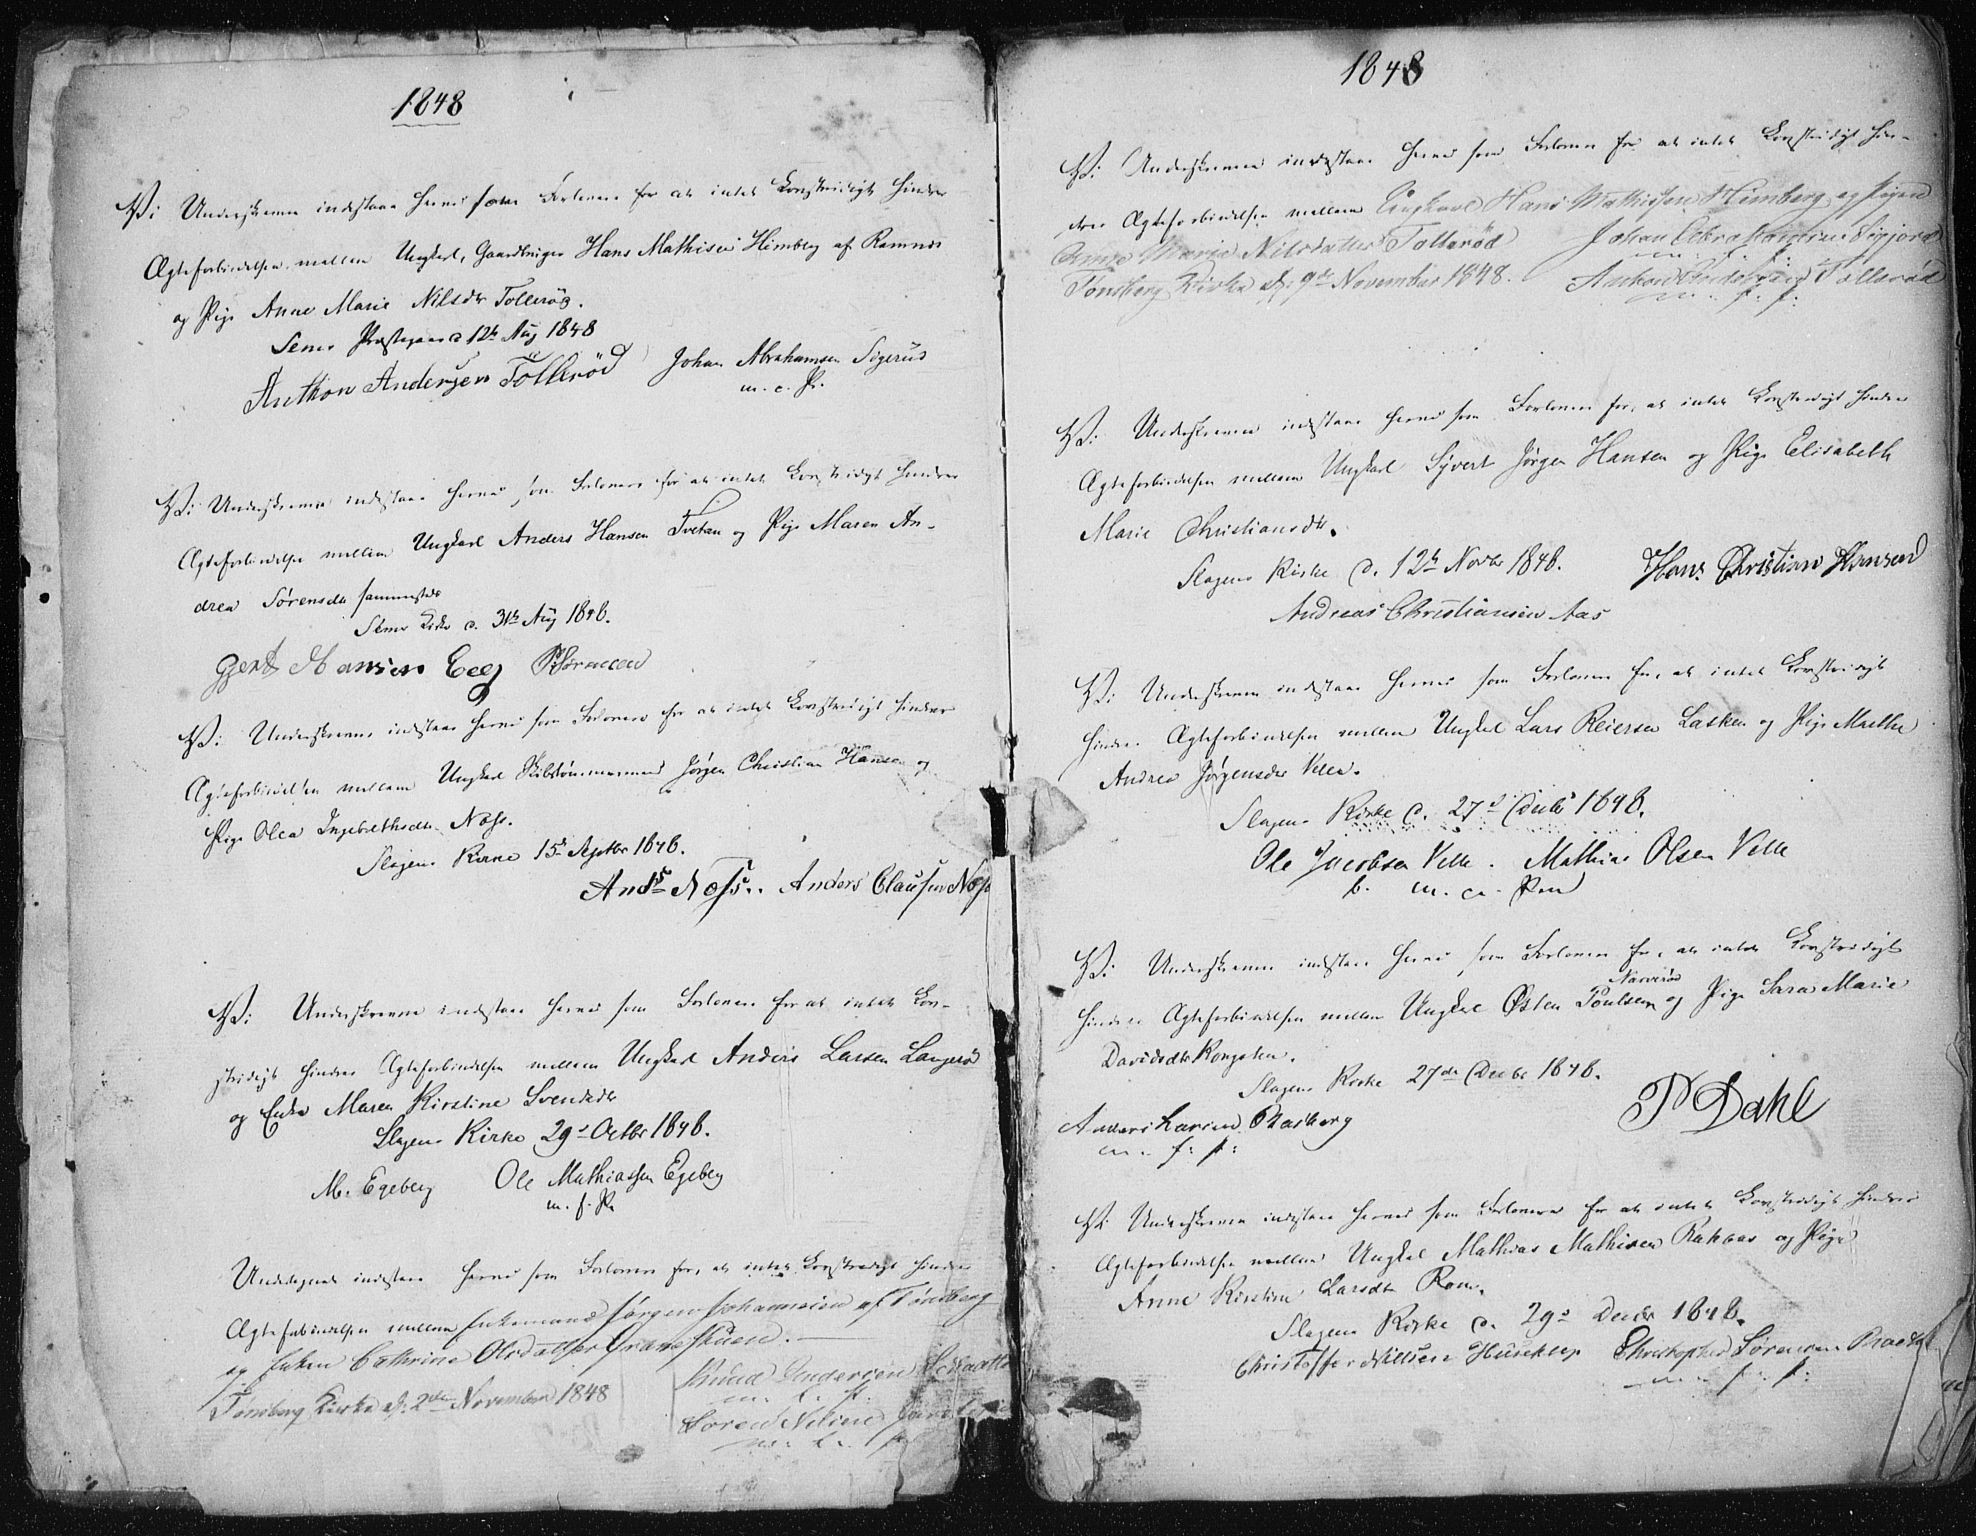 1848
Vi Underskrevne indestaae herved som Forlovere for at intet Lovstridigt hindrer
Ægteforbindelsen mellem Ungkarl, Gaardbruger Hans Mathisen Himberg af Ramnes
og Pige Anne Marie Nilsdr Tollerød.
Sems Præstegaard 12te Aug 1848
Anthon Andersen Tollerød Johan Abrahamsen
m. p. P.
Vi Underskrevne indestaae herved som Forlovere for at intet Lovstridigt hindrer
Ægteforbindelsen mellem Ungkarl Anders Hansen Tvetan og Pige Maren An-
drea Sørensdr sammesteds
Sems Kirke d. 31te Aug 1848.
Gjert Hansen Eeg Sørensen
Vi Underskrevne indestaae herved som Forlovere for at intet Lovstridigt hindrer
Ægteforbindelsen mellem Ungkarl Skibstømmermand Jørgen Christian Hansen og
Pige Olea Ingebrethsdr Næss.
Slagens Kirke 15de Septbr 1848.
Ands Næss. Anders Clausen Næss
Vi Underskrevne indestaae herved som Forlovere for at intet Lov-
stridigt hindrer Ægteforbindelsen mellem Ungkarl Anders Larsen Langerød
og Enke Maren Kirstine Svendsdr
Slagens Kirke 29de Octbr 1848.
M. Egeberg Ole Mathiassen Egeberg
m. f. P.
Undertegnede indestaae herved som Forlovere for, at intet Lovstridigt hindrer
Ægteforbindelsen mellem Enkemand Jørgen Johannesen af Tønsberg
og Enken Cathrine Olsdatter
Tønsberg Kirke d: 2den November 1848 Knud Andersen
m. f. p.
Søren Nilsen
m. f. p.
1848
Vi Underskrevne indestaae herved som Forlovere for at intet Lovstridigt hin-
drer Ægteforbindelsen mellem Ungkarl Hans Mathisen Himberg og Pigen
Anne Marie Nilsdatter Tollerød Johan Abrahamsen
m. f. p.
Tønsberg Kirke d: 9de November 1848. Anthon Andersen Tollerød
m. f. p.
Vi Underskrevne indestaae herved som Forlovere for, at intet Lovstridigt hindrer
Ægteforbindelsen mellem Ungkarl Syvert Jørgen Hansen og Pige Elisabeth
Marie Christiansdr.
Slagens Kirke d. 12te Novbr 1848. Hans Christian Hansen
Andreas Christiansen Aas
Vi Underskrevne indestaae herved som Forlovere for, at intet Lovstridigt
hindrer Ægteforbindelsen mellem Ungkarl Lars Reiersen Lasken og Pige Marthe
Andrea Jørgensdr Velle.
Slagens Kirke d. 27de Decbr 1848.
Ole Jacobsen Velle. Mathias Olsen Velle
m. p. Pen
Vi Underskrevne indestaae herved som Forlovere for, at intet Lovstridigt
hindrer Ægteforbindelsen mellem Ungkarl Østen Poulsen Narverød og Pige Sara Marie
Davidsdr Rongsten.
Slagens Kirke 27de Decbr 1848.
P Dahl
Anders Larsen
m. f. p:
Vi Underskrevne indestaae herved som Forlovere for at intet Lovstridigt hindrer
Ægteforbindelsen mellem Ungkarl Mathias Mathisen og Pige
Anne Kirstine Larsdr Rom.
Slagens Kirke d. 29de Decbr 1848.
Christoffer Nillsen Huseklep Christopher Sørensen
m. f. p: